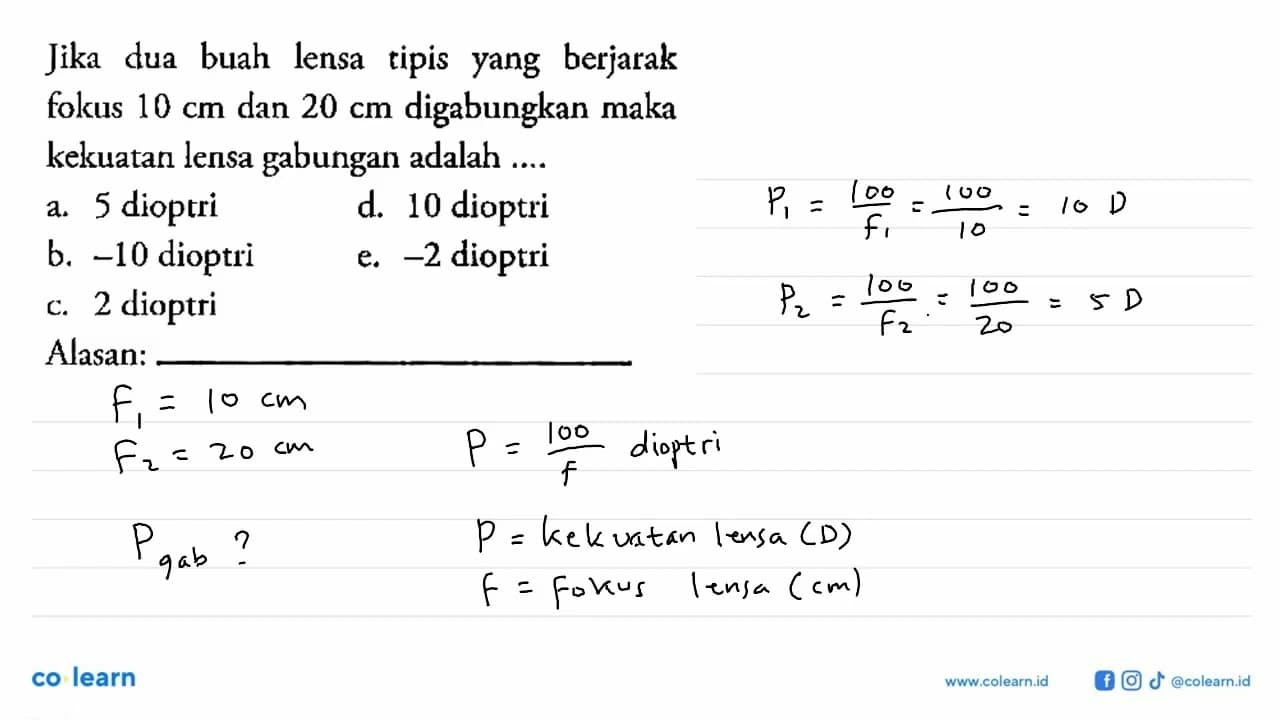 Jika dua buah lensa tipis yang berjarak
fokus 10 cm dan 20 cm digabungkan maka
kekuatan lensa gabungan adalah ....
a. 5 dioptri d. 10 dioptri
b. –10 dioptri e. –2 dioptri
c. 2 dioptri
Alasan: ____________
P₁ = 100/f₁ = 100/10 = 10 D
P₂ = 100/F₂ = 100/20 = 5 D
F₁ = 10 cm
F₂ = 20 cm
P = 100/f dioptri
P gab ?
P = kekuatan lensa (D)
F = Fokus lensa (cm)
co learn
www.colearn.id @colearn.id